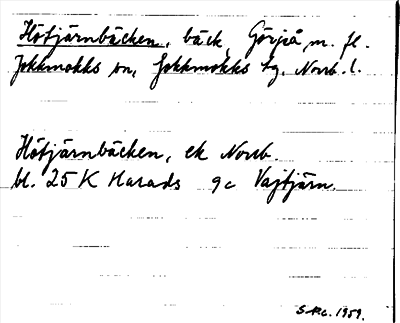 Hötjärnbäcken, bäck, Görjeå m. fl.
Jokkmokks sn, Jokkmokks tg. Norrb. l.
Hötjärnbäcken, ek Norrb.
bl. 25 K Harads 9c Vajtjärn.
1959.